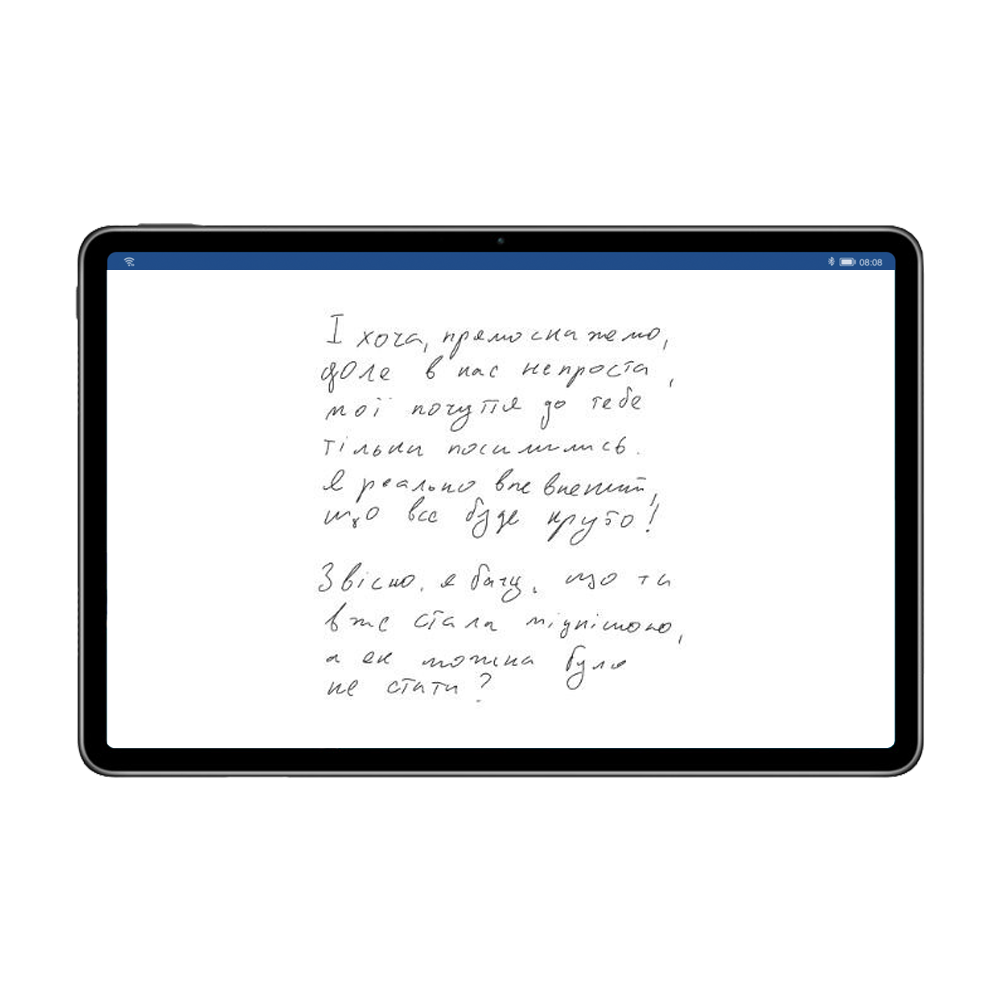 08:08
І хоча, прямо скажемо,
доля в нас непроста,
мої почуття до тебе
тільки посилились.
Я реально впевнений,
що все буде круто!
Звісно, я бачу, що ти
вже стала міцнішою,
а як можна було
не стати?